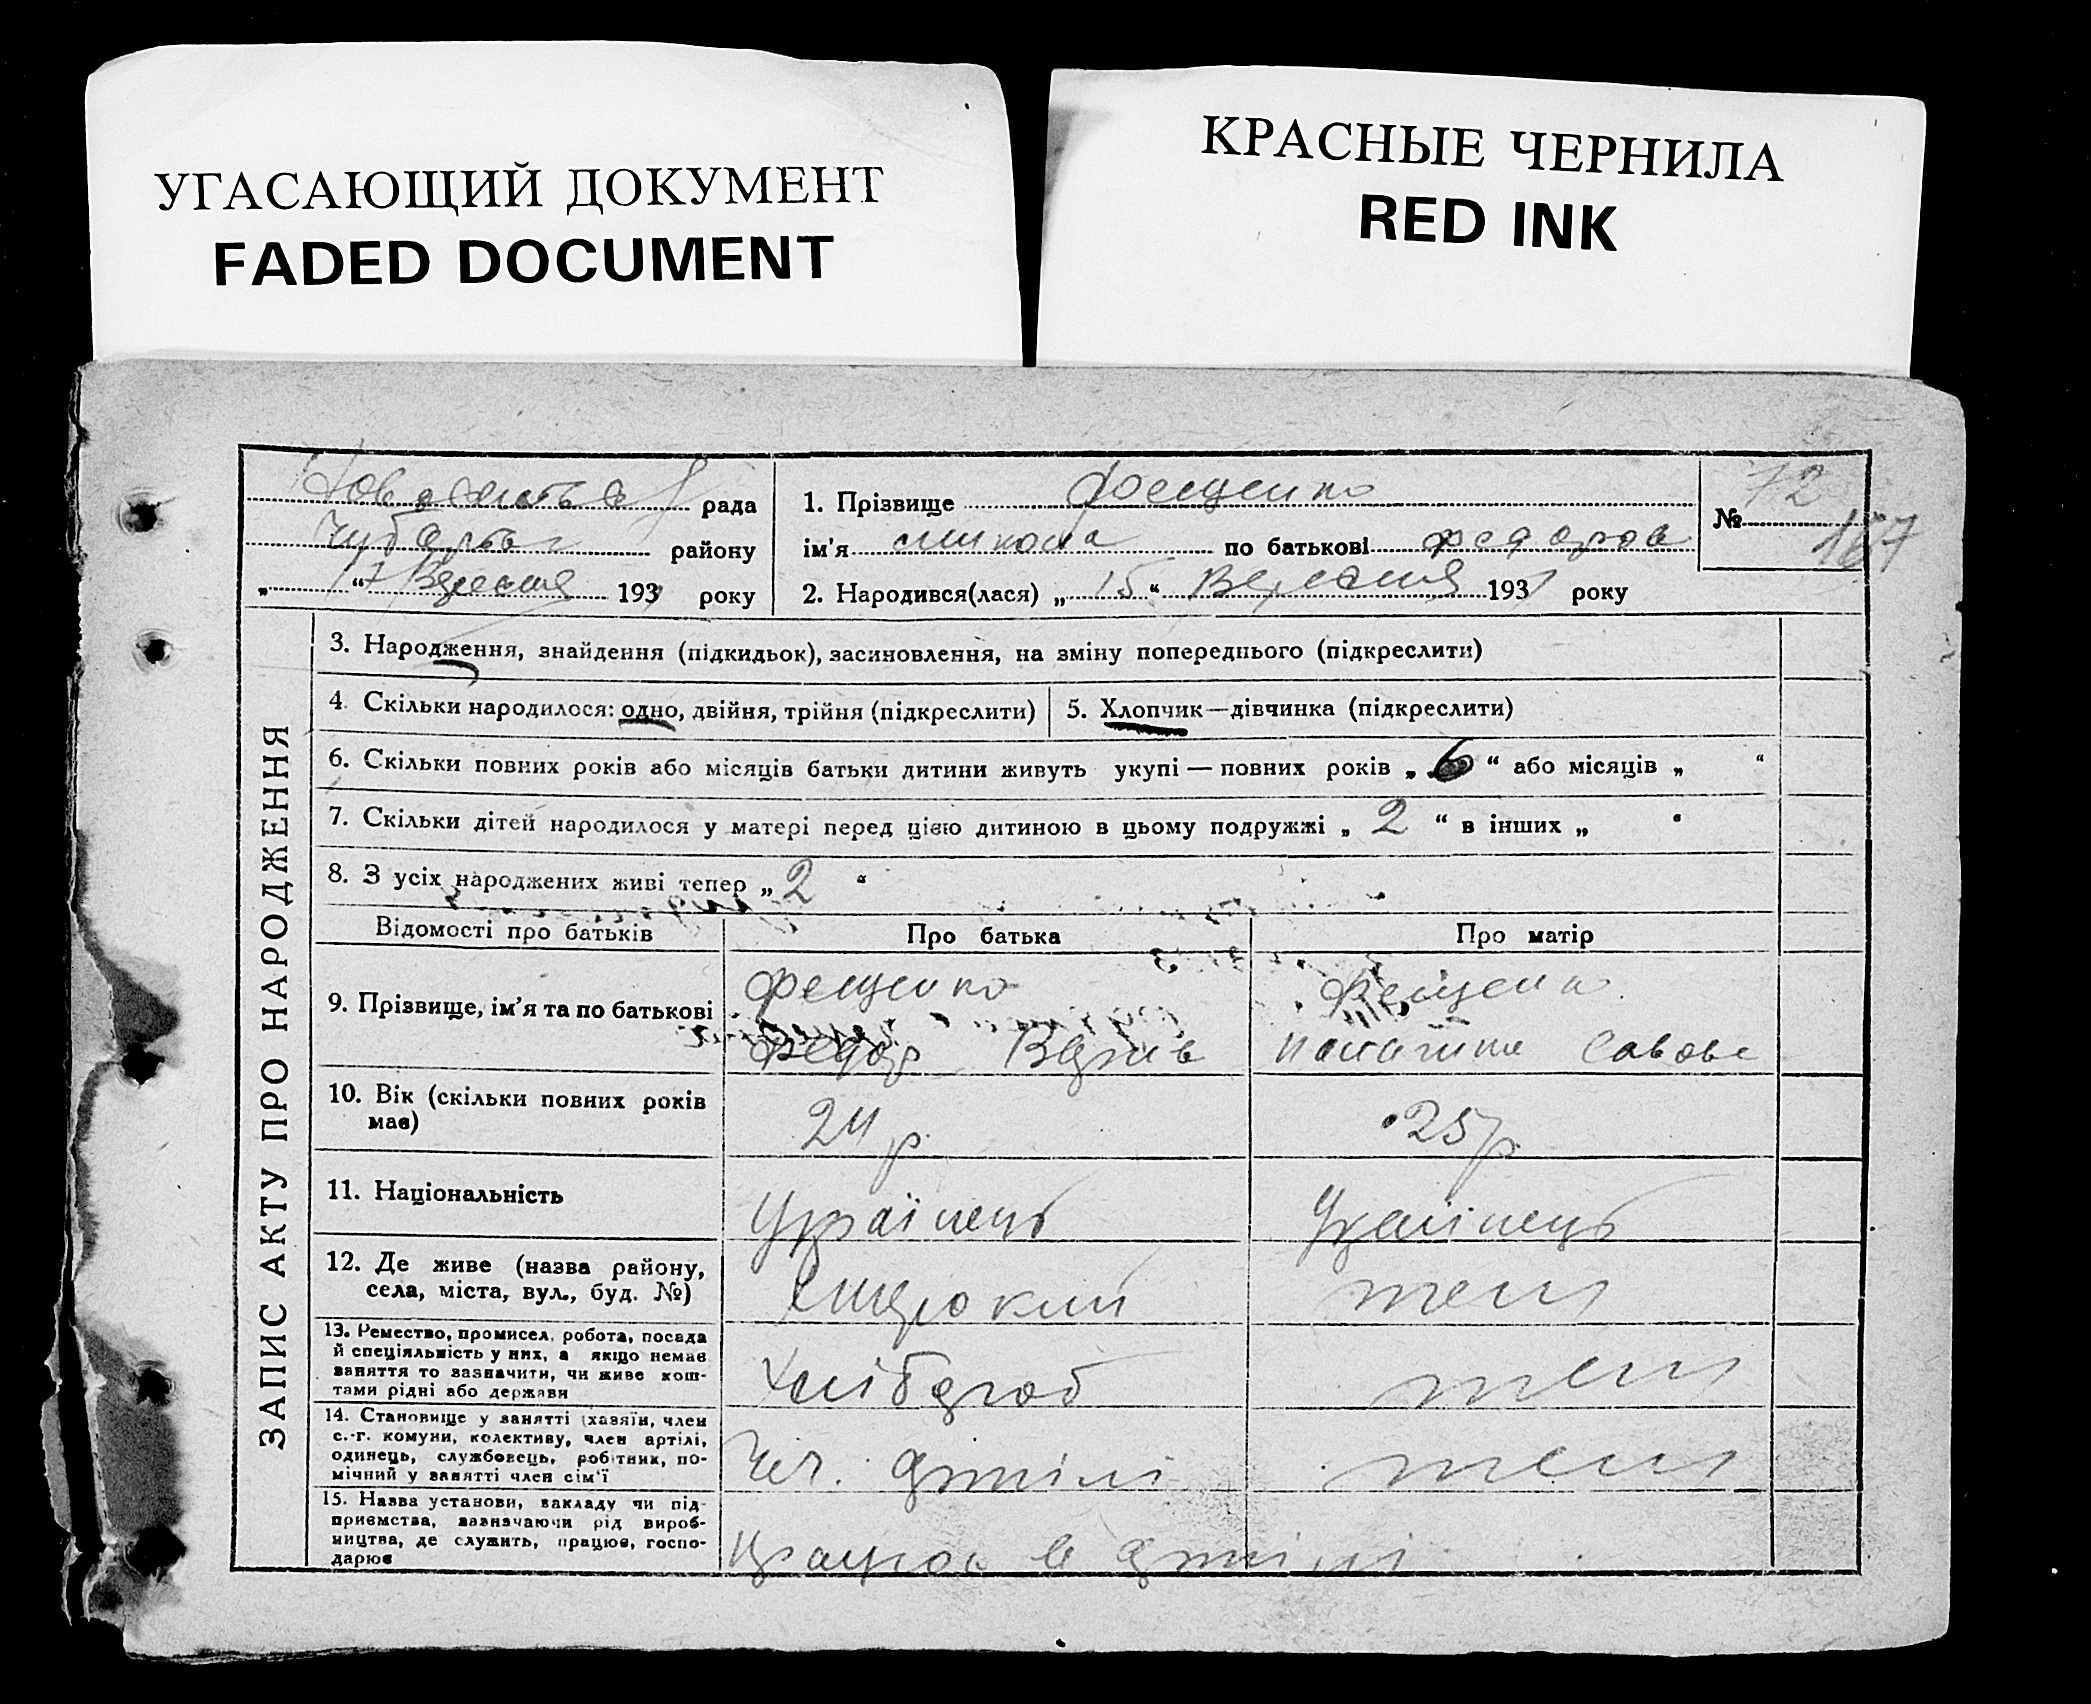 УГАСАЮЩИЙ ДОКУМЕНТ
FADED DOCUMENT
КРАСНЫЕ ЧЕРНИЛА
RED INK
рада
району
„ 17 “ Вересня 193 року
1. Прізвище Фещенко
ім'я по батькові Федоров
2. Народився(лася) „ 15 “ Вересня 193 року
№ 72
167
ЗАПИС АКТУ ПРО НАРОДЖЕННЯ
3. Народження, знайдення (підкидьок), засиновлення, на зміну попереднього (підкреслити)
4. Скільки народилося: одно, двійня, трійня (підкреслити)
5. Хлопчик—дівчинка (підкреслити)
6. Скільки повних років або місяців батьки дитини живуть укупі — повних років „ 6 “ або місяців „ “
7. Скільки дітей народилося у матері перед цією дитиною в цьому подружжі „ 2 “ в інших „ “
8. З усіх народжених живі тепер „ 2 “
Відомості про батьків
Про батька
Про матір
9. Прізвище, ім'я та по батькові
Фещенко
Федор
Фещенко
Савова
10. Вік (скільки повних років
має)
24 р
25 р
11. Національність
Українець
Українець
12. Де живе (назва району,
села, міста, вул., буд. №)
Широкий
теж
13. Ремество, промисел, робота, посада
й спеціяльність у них, а якщо немає
заняття то зазначити, чи живе кош-
тами рідні або держави
Хлібороб
теж
14. Становище у занятті (хазяїн, член
с.-г. комуни, колективу, член артілі,
одинець, службовець, робітник, по-
мічний у занятті член сім'ї
Чл. артілі
теж
15. Назва установи, закладу чи під-
приємства, зазначаючи рід вироб-
ництва, де служить, працює, госпо-
дарює
працює в артілі